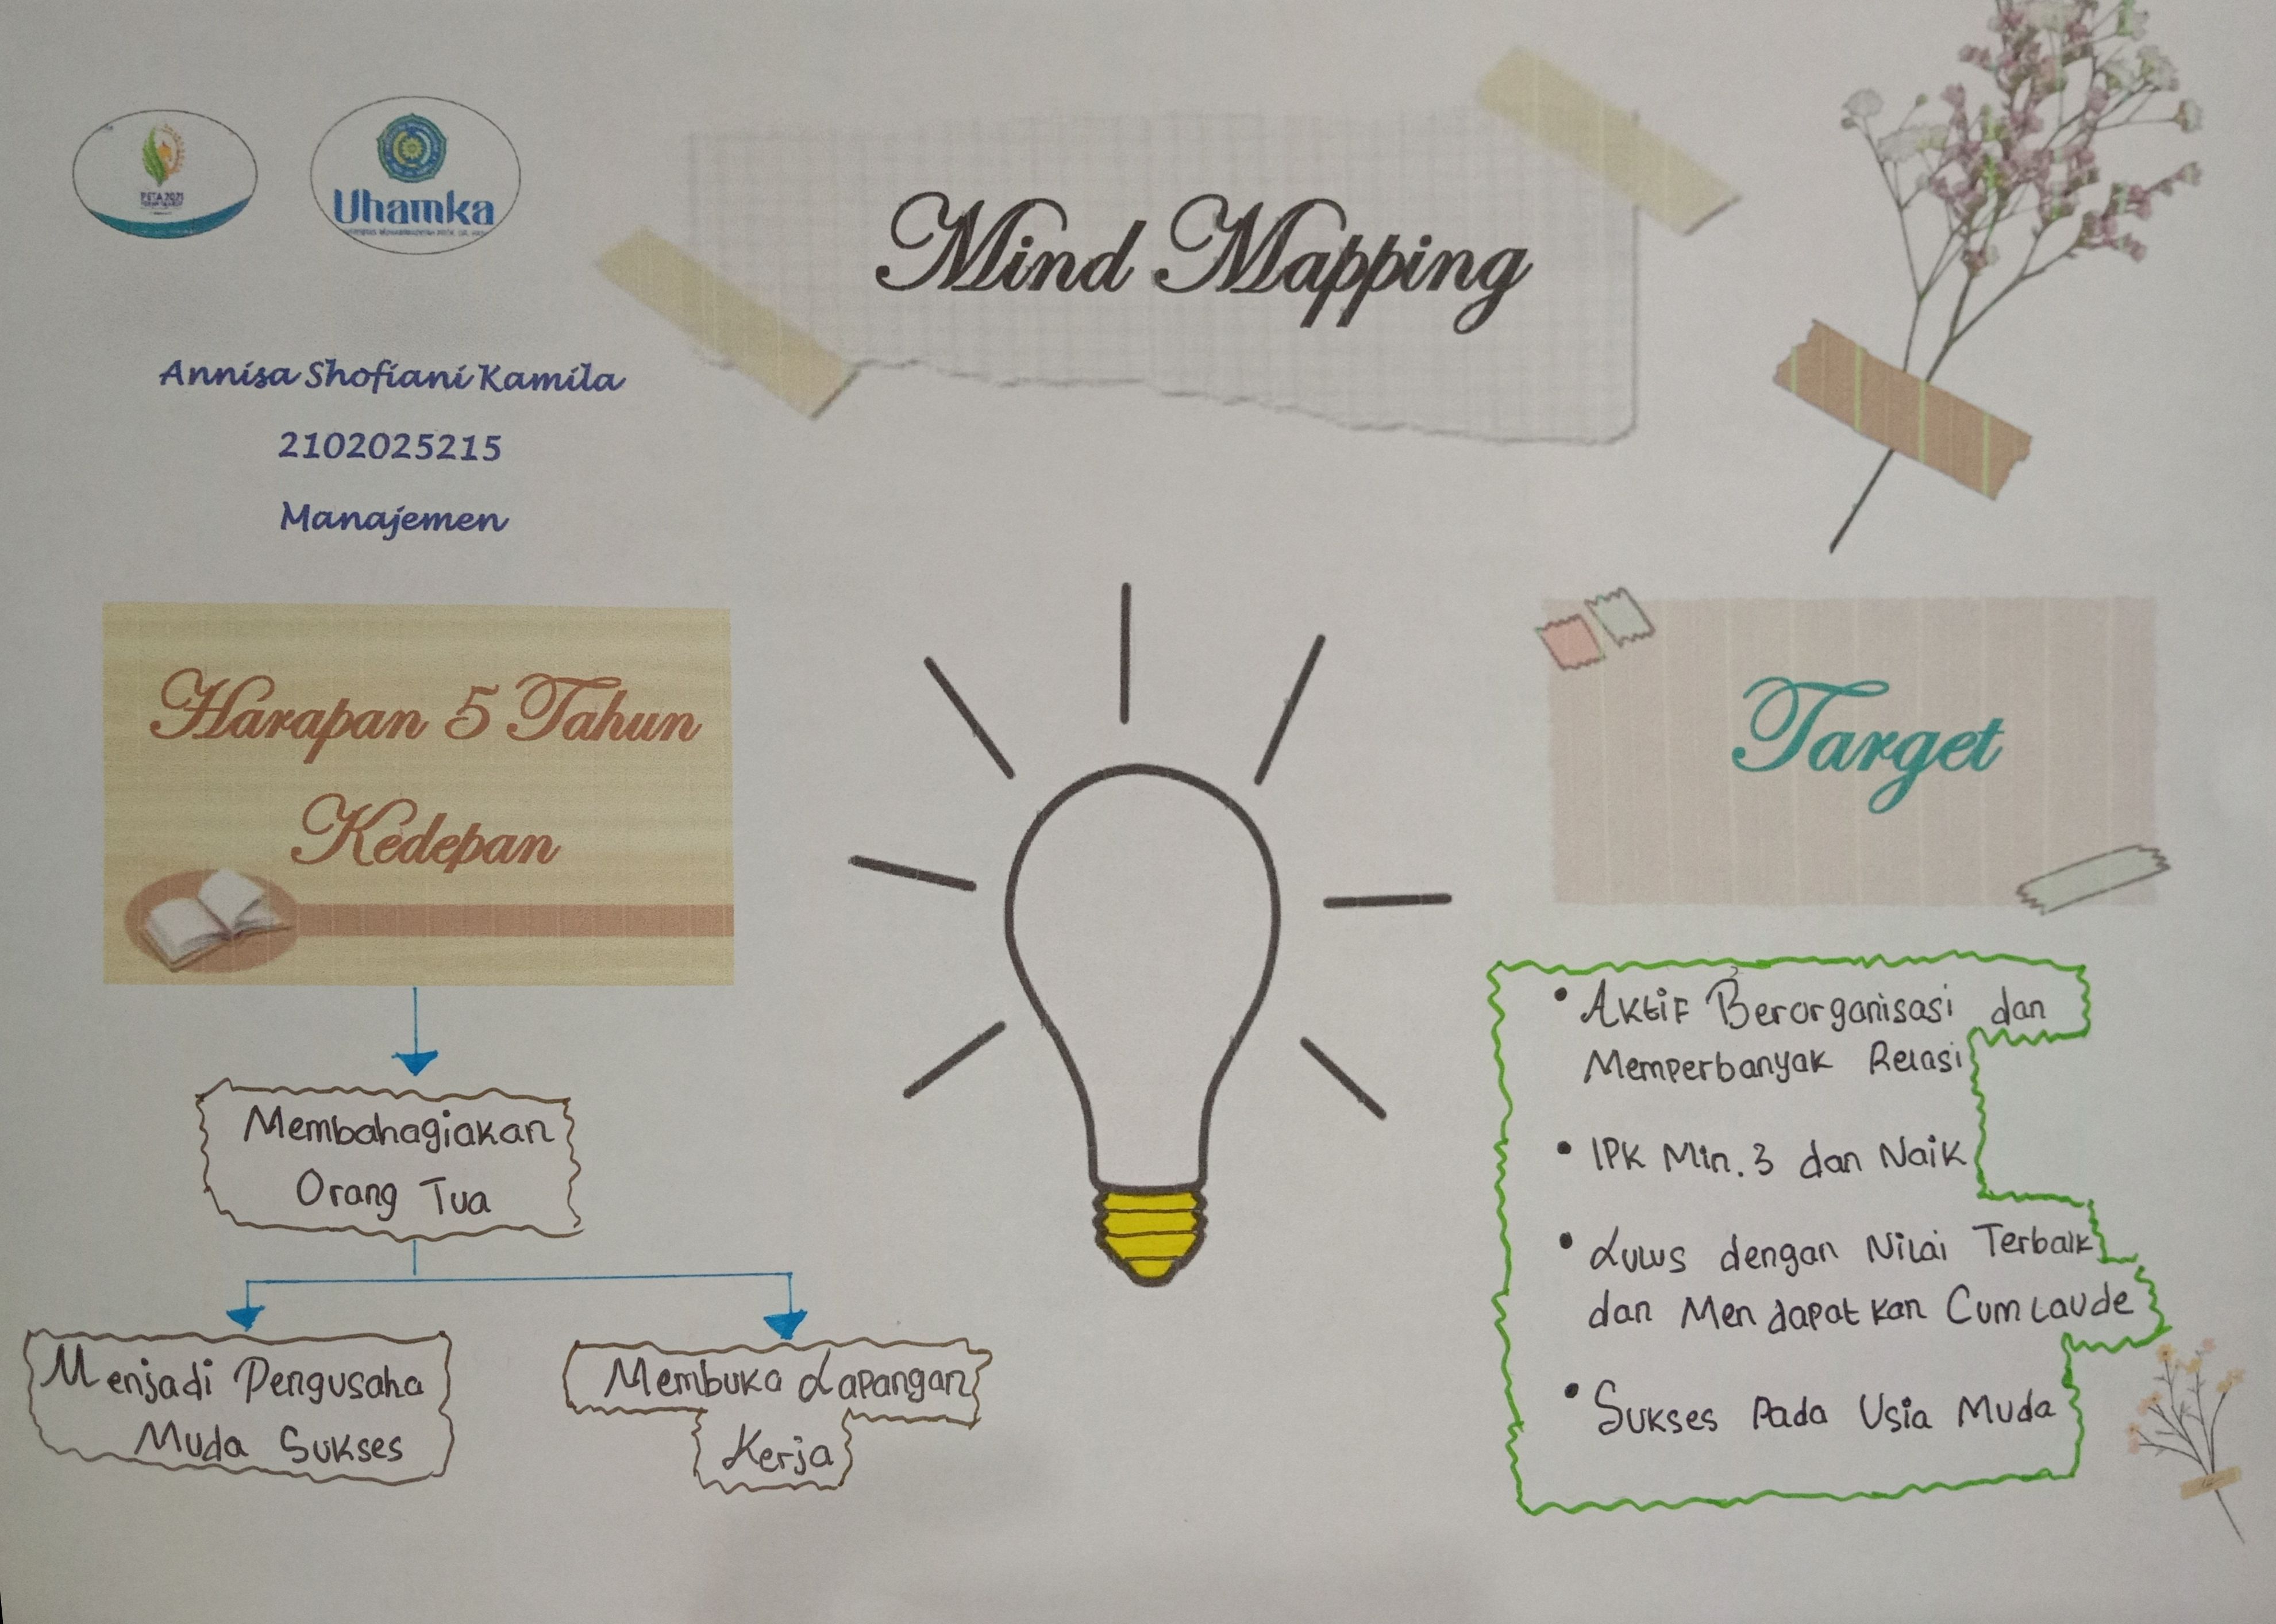 PETA 2021
Uhamka
Mind Mapping
Annisa Shofiani Kamila
2102025215
Manajemen
Harapan 5 Tahun
Kedepan
Membahagiakan
Orang Tua
Menjadi Pengusaha
Muda Sukses
Membuka Lapangan
Kerja
Target
• Aktif Berorganisasi dan
Memperbanyak Relasi
• IPK Min. 3 dan Naik
• Lulus dengan Nilai Terbaik
dan Mendapatkan Cumlaude
• Sukses Pada Usia Muda